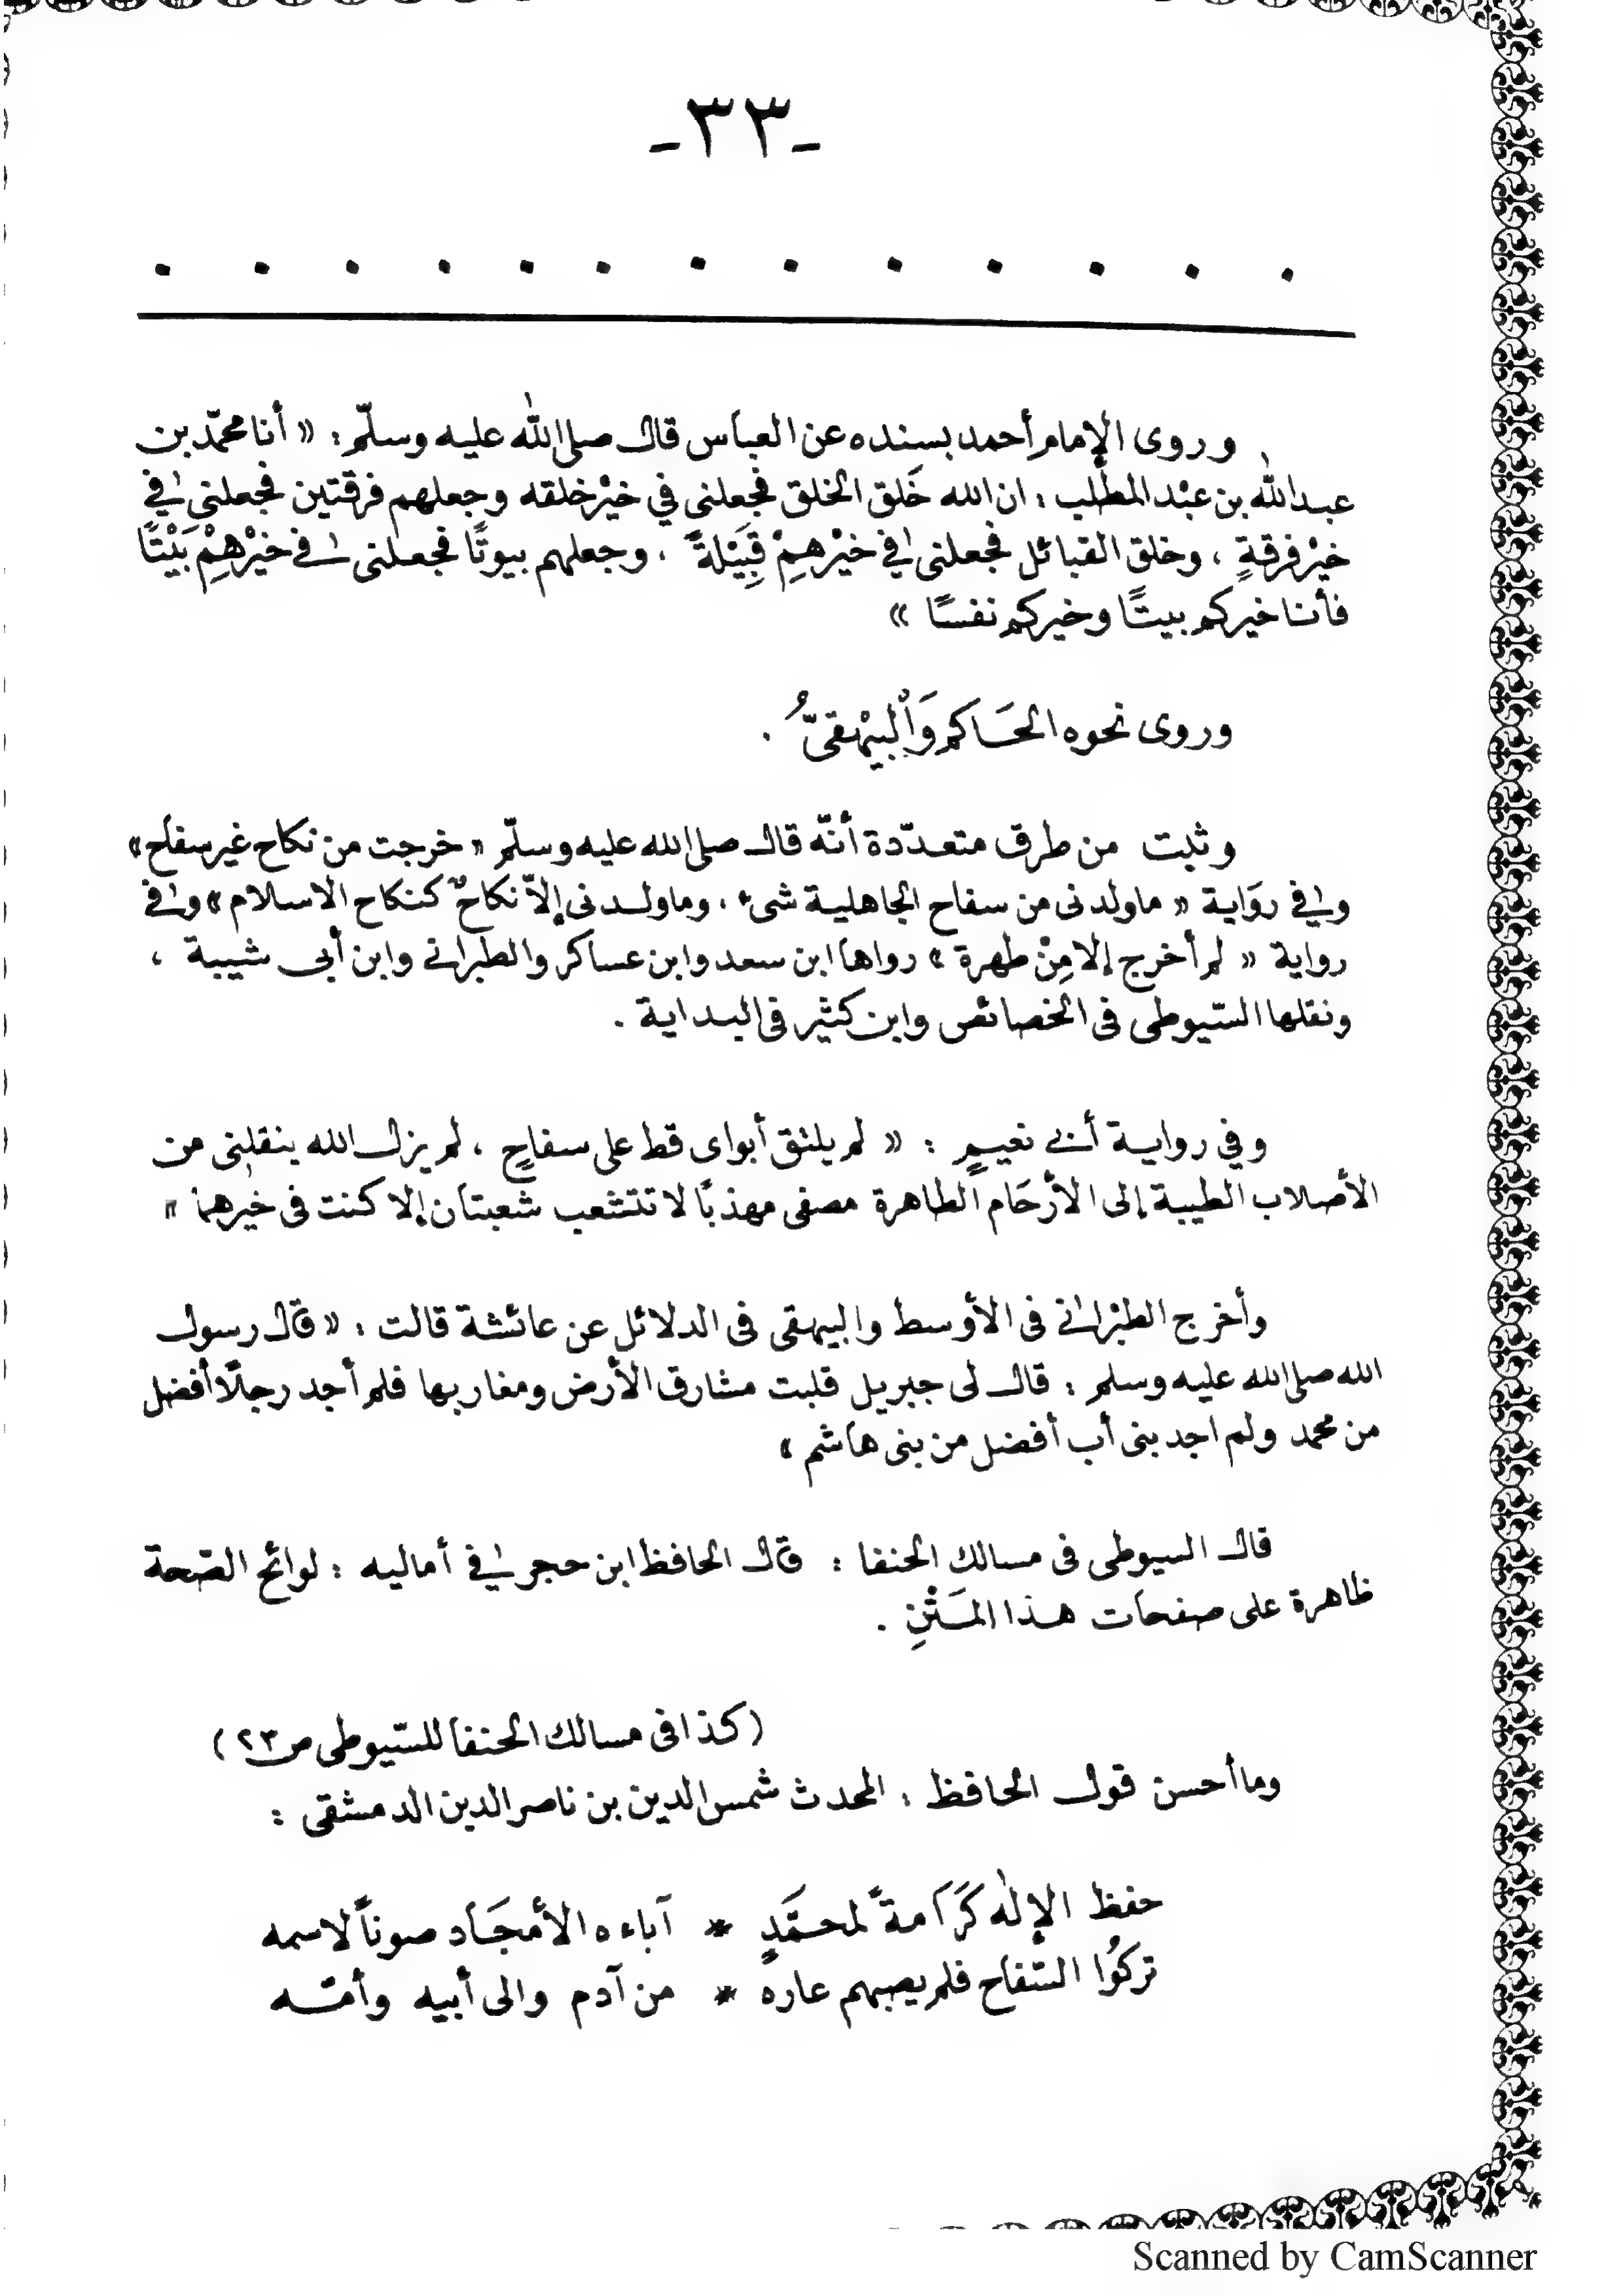 -٣٣-
. . . . . . . . . . . . .
وروى الإمام أحمد بسنده عن العباس قال صلى الله عليه وسلّم : « أنا محمّد بن
عبد الله بن عبْد المطلب : ان الله خَلق الخلق فجعلنى في خيْر خلقه وجعلهم فرقتين فجعلنى في
خيْر فرقةٍ ، وخلق القبائل فجعلنى في خيْرهِمْ قِبَيْلةً ، وجعلهم بيوتًا فجعلنى في خيْرهِمْ بَيْتًا
فأنا خيركم بيتًا وخيركم نفسًا »
وروى نحوه الحَاكم وَالْبيْهقىّ .
وثبت من طرق متعدّدة أنّه قال صلى الله عليه وسلّم « خرجت من نكاح غير سفاح »
وفي روَاية « ماولدنى من سفاح الجاهلية شىء ، وماولدنى إلاّ نكاحٌ كنكاح الاسلام » وفي
رواية « لم أخرج إلا مِنْ طهرة » رواها ابن سعد وابن عساكر والطبرانى وابن أبى شيبة ،
ونقلها السّيوطى فى الخصائص وابن كثير فى البداية .
وفي رواية أبى نعيمٍ : « لم يلتق أبواى قط على سفاحٍ ، لم يزل الله ينقلنى من
الأصلاب الطيبة إلى الأرْحَام الطاهرة مصفى مهذبًا لا تتشعب شعبتان إلا كنت فى خيْرهما »
وأخرج الطبْرانى فى الأوسط والبيهقى فى الدلائل عن عائشة قالت : « قال رسول
الله صلى الله عليه وسلم : قال لى جبريل قلبت مشارق الأرض ومغاربها فلم أجد رجلًا أفضل
من محمد ولم اجد بنى أب أفضل من بنى هاشم »
قال السيوطى فى مسالك الحنفا : قال الحافظ ابن حجر في أماليه : لوائح الصّحة
ظاهرة على صفحات هذا المَتْنِ .
( كذا فى مسالك الحنفا للسّيوطى ص ٢٣ )
وما أحسن قول الحافظ : المحدث شمس الدين بن ناصر الدين الدمشقى :
حفظ الإله كَرَامةً لمحمَّدٍ * آباءه الأمْجَاد صوناً لاسمه
تركُوا السّفاح فلم يصبهم عاره * من آدم والى أبيه وأمّه
Scanned by CamScanner